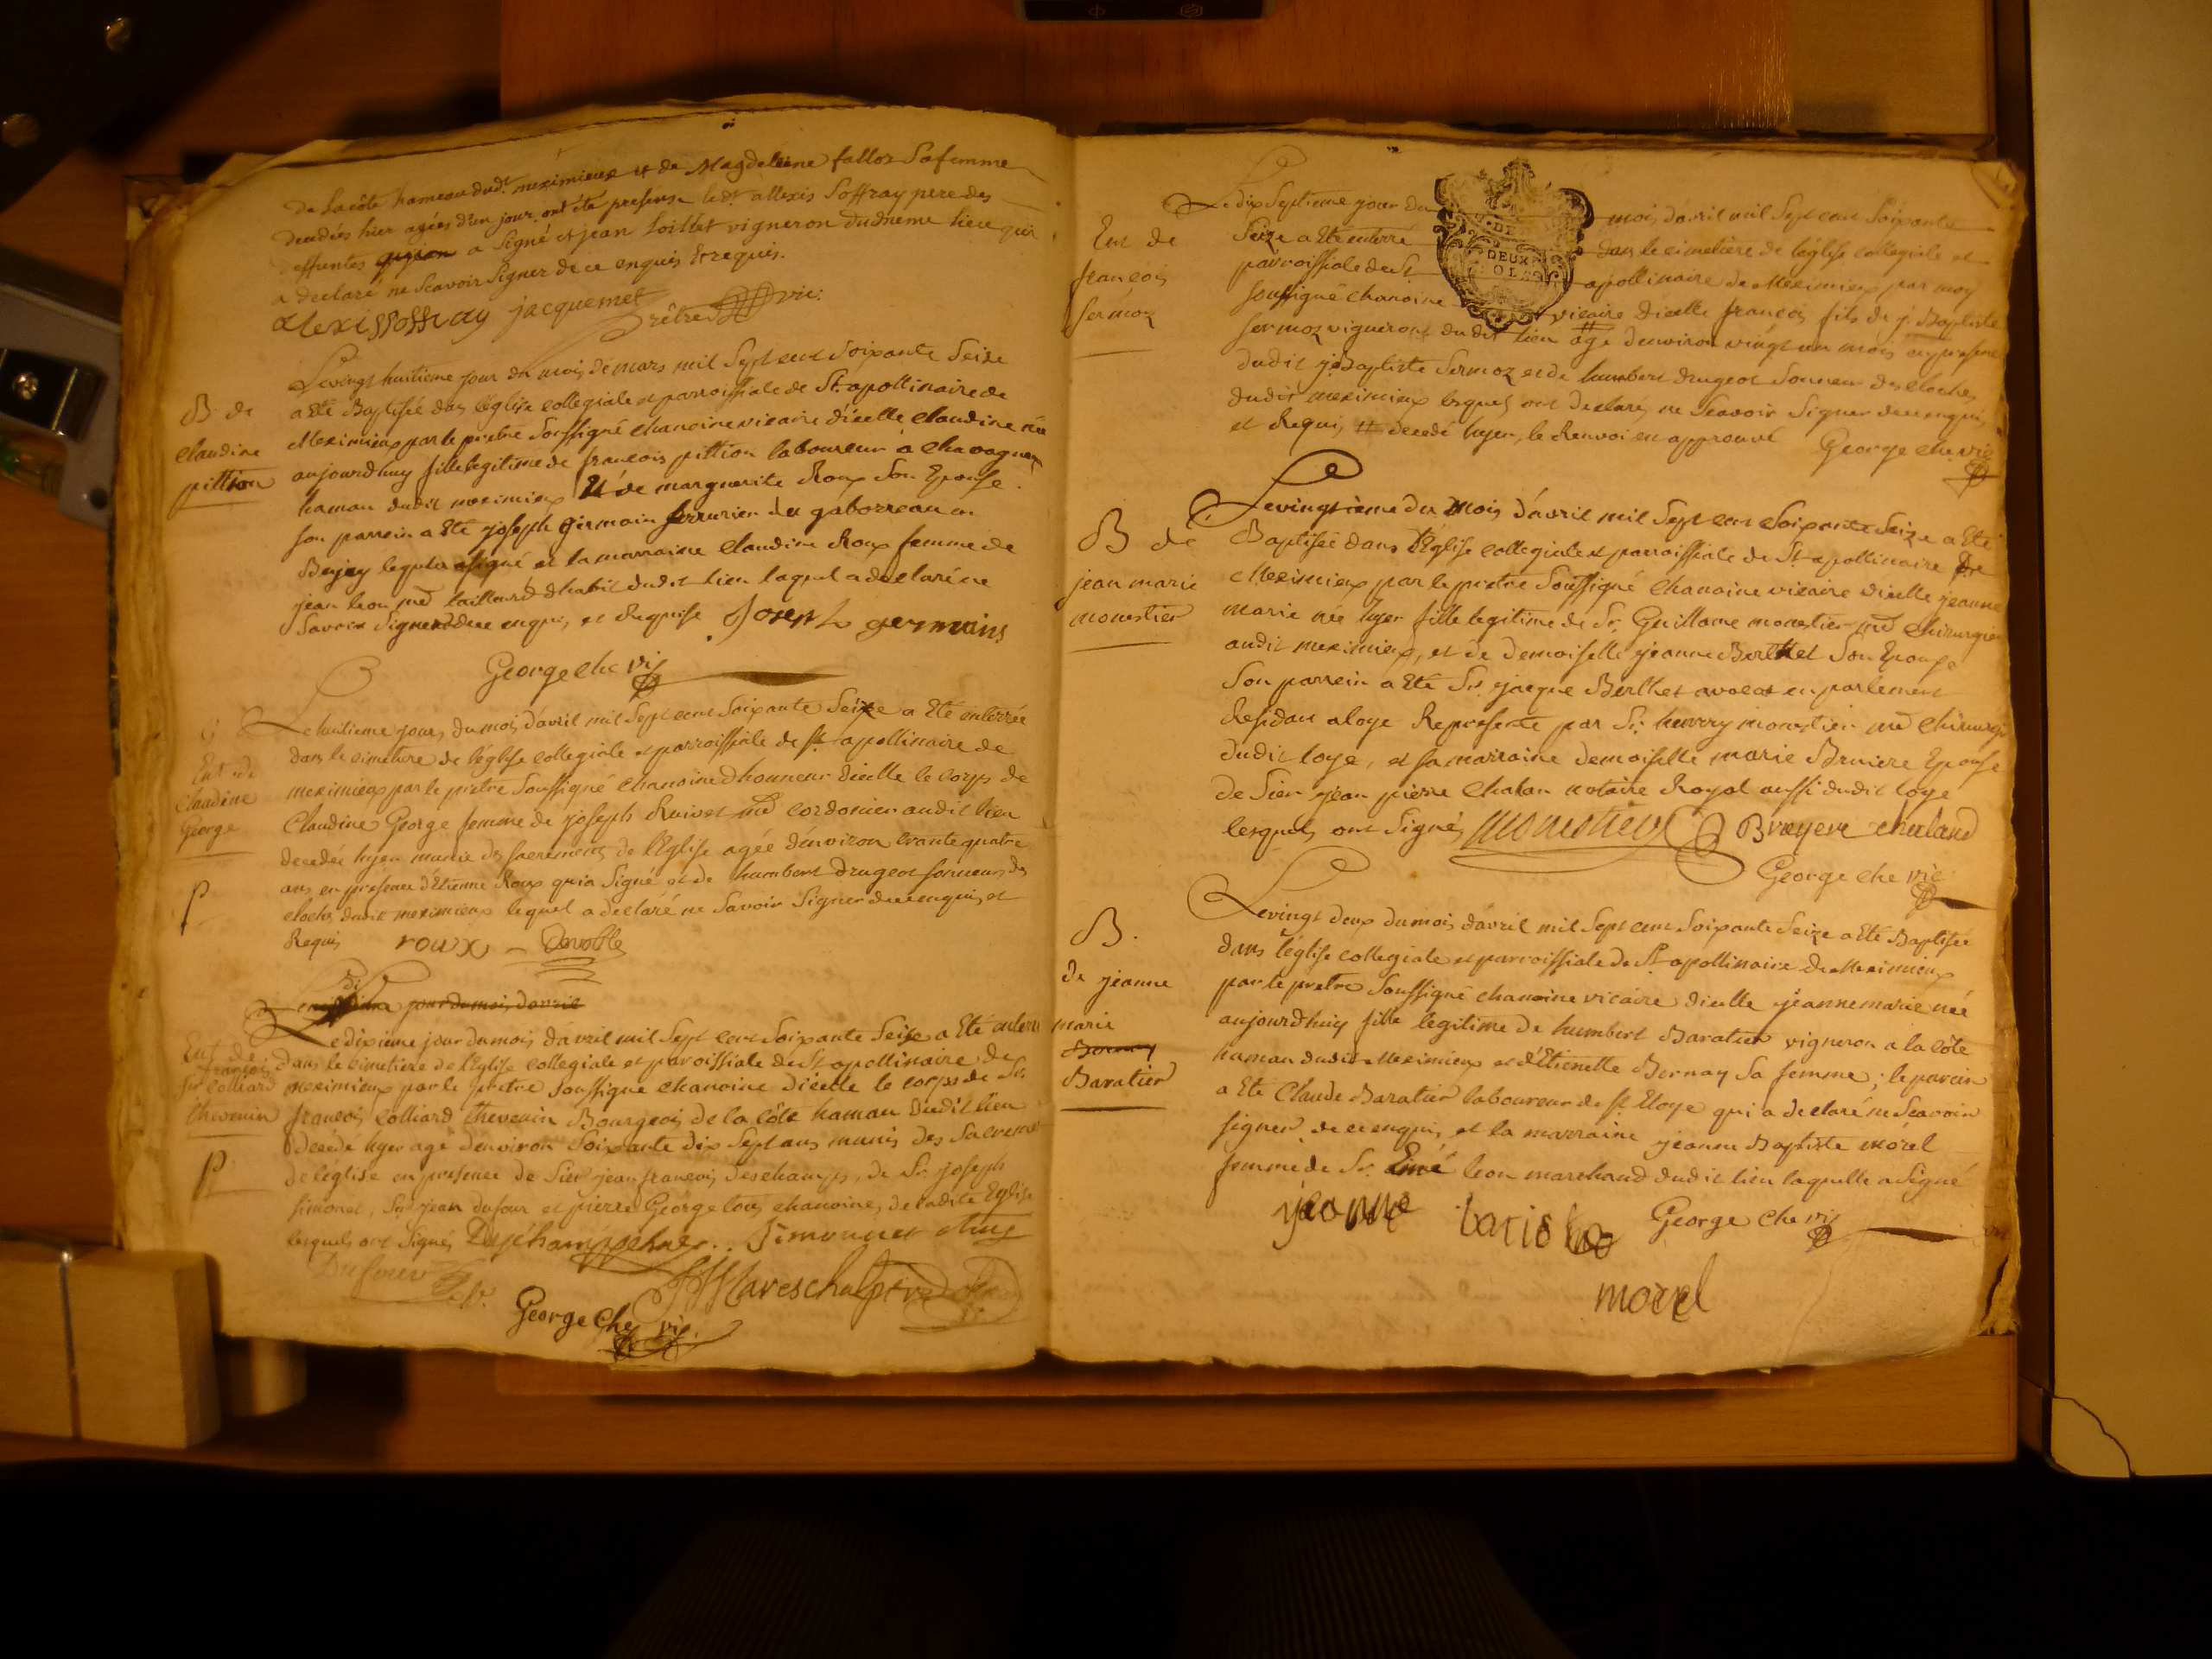 de la côte hameau dudt meximieux et de Magdeleine falloz sa femme
decedées hier agées d'un jour, ont été presens ledt allexis soffray pere des
deffuntes qui a signé et jean loillet vigneron du meme lieu qui
a declaré ne scavoir signer de ce enquis & requis.
alexis soffray jacquemet prêtre vic:
B de
claudine
pittion
Le vingt huitieme jour du mois de mars mil sept cent soixante seize
a eté Baptisée dans l'église collegiale et parroissiale de St. apollinaire de
Meximieux par le pretre soussigné chanoine vicaire d'icelle claudine née
aujourdhuy fille legitime de francois pittion laboureur à chavagneu
hamau dudit meximieux et de marguerite Roux son Epouse.
son parrein a eté joseph germain serrurier du gaborreau en
Bugey lequel a signé et la marraine claudine Roux femme de
jean leon md tailleur d'habit dudit lieu laquel a declaré ne
savoir signer de ce enquis, et requise Joseph germains
George che vic
Ent de
Claudine
George
P
Le huitieme jour, du mois d'avril mil sept cent soixante seize a eté enterrée
dans le cimetiere de l'église collegiale et parroissiale de St. apollinaire de
meximieux par le pretre soussigné chanoine d'honneur d'icelle le corps de
Claudine George femme de joseph Ruivet md cordonier audit lieu
decedée hyer munie des sacrements de l'Eglise agée d'environ trante quatre
ans en presence d'Etienne Roux qui a signé et de humbert drugeot sonneur des
cloches dudit meximieux lequel a declaré ne savoir signer de ce enquis, et
Requis roux
jour du mois d'avril
Ent de
francois
Sr colliard
thevenin
P
Le dixieme jour du mois d'avril mil sept cent soixante seize a eté enterré
dans le cimetiere de l'Eglise collegiale et paroissiale de St apollinaire de
meximieux par le pretre soussigné chanoine d'icelle le corps de Sr.
francois colliard thevenin Bourgeois de la côte hamau dudit lieu
decedé hyer agé d'environ soixante dix sept ans munis des sacremens
de l'eglise en presence de Sier jean francois deschamps, de Sr. joseph
simonet, Sr. jean dufour et pierre George tous chanoines, de ladite Eglise
lesquels ont signés Deschamps Simonnet
Dufour Mareschal
George Che vic.
Ent de
francois
sermoz
Le dix septieme jour du mois d'avril mil sept cent soixante
seize a eté enterré dans le cimetière de l'église collegiale et
parroissiale de St apollinaire de Meximieux par moy
soussigné chanoine vicaire d'icelle francois fils de j. Baptiste
DEUX
sermoz vigneront dudit lieu agé d'environ vingt un mois en presence
dudit j. Baptiste sermoz et de humbert drugeot sonneur des cloches
dudit meximieux lesquels ont declarés ne scavoir signer de ce enquis
et Requis, # decedé hyer, le Renvoi en approuvé George che vic
B de
jean marie
monestier
Le vingtième du mois d'avril mil sept cent soixante seize a eté
Baptisée dans l'Eglise collegiale et parroissiale de St. apollinaire de
Meximieux par le pretre soussigné chanoine vicaire d'icelle jeanne
marie née hyer fille legitime de Sr. Guillaume monestier md chirurgien
audit meximieux, et de demoiselle jeanne Berthet son Epouse
son parrein a eté Sr. jacque Berthet avocat en parlement
Residant a loye Représenté par Sr. monestier md chirurgien
dudit loye, et sa marraine demoiselle marie Bruiere Epouse
de sier jean pierre chalan notaire Royal aussi dudit loye
lesquels ont signés monestier Bruyere chaland
George che vic
B.
de jeanne
marie
Bernay
Baratier
Le vingt deux du mois d'avril mil sept cent soixante seize a eté Baptisée
dans l'église collegiale et parroissiale de St. apollinaire de Meximieux
par le pretre soussigné chanoine vicaire d'icelle jeanne marie née
aujourdhuy fille legitime de humbert Baratier vigneron a la côte
hamau dudit Meximieux et d'Etienette Bernay sa femme; le parein
a eté Claude Baratier laboureur de St. Eloye qui a declaré ne scavoir
signer de ce enquis, et la marraine jeanne Baptiste morel
femme de Sr. Aimé leon marchand dudit lieu laquelle a signé
jeanne batiste George che vic
morel